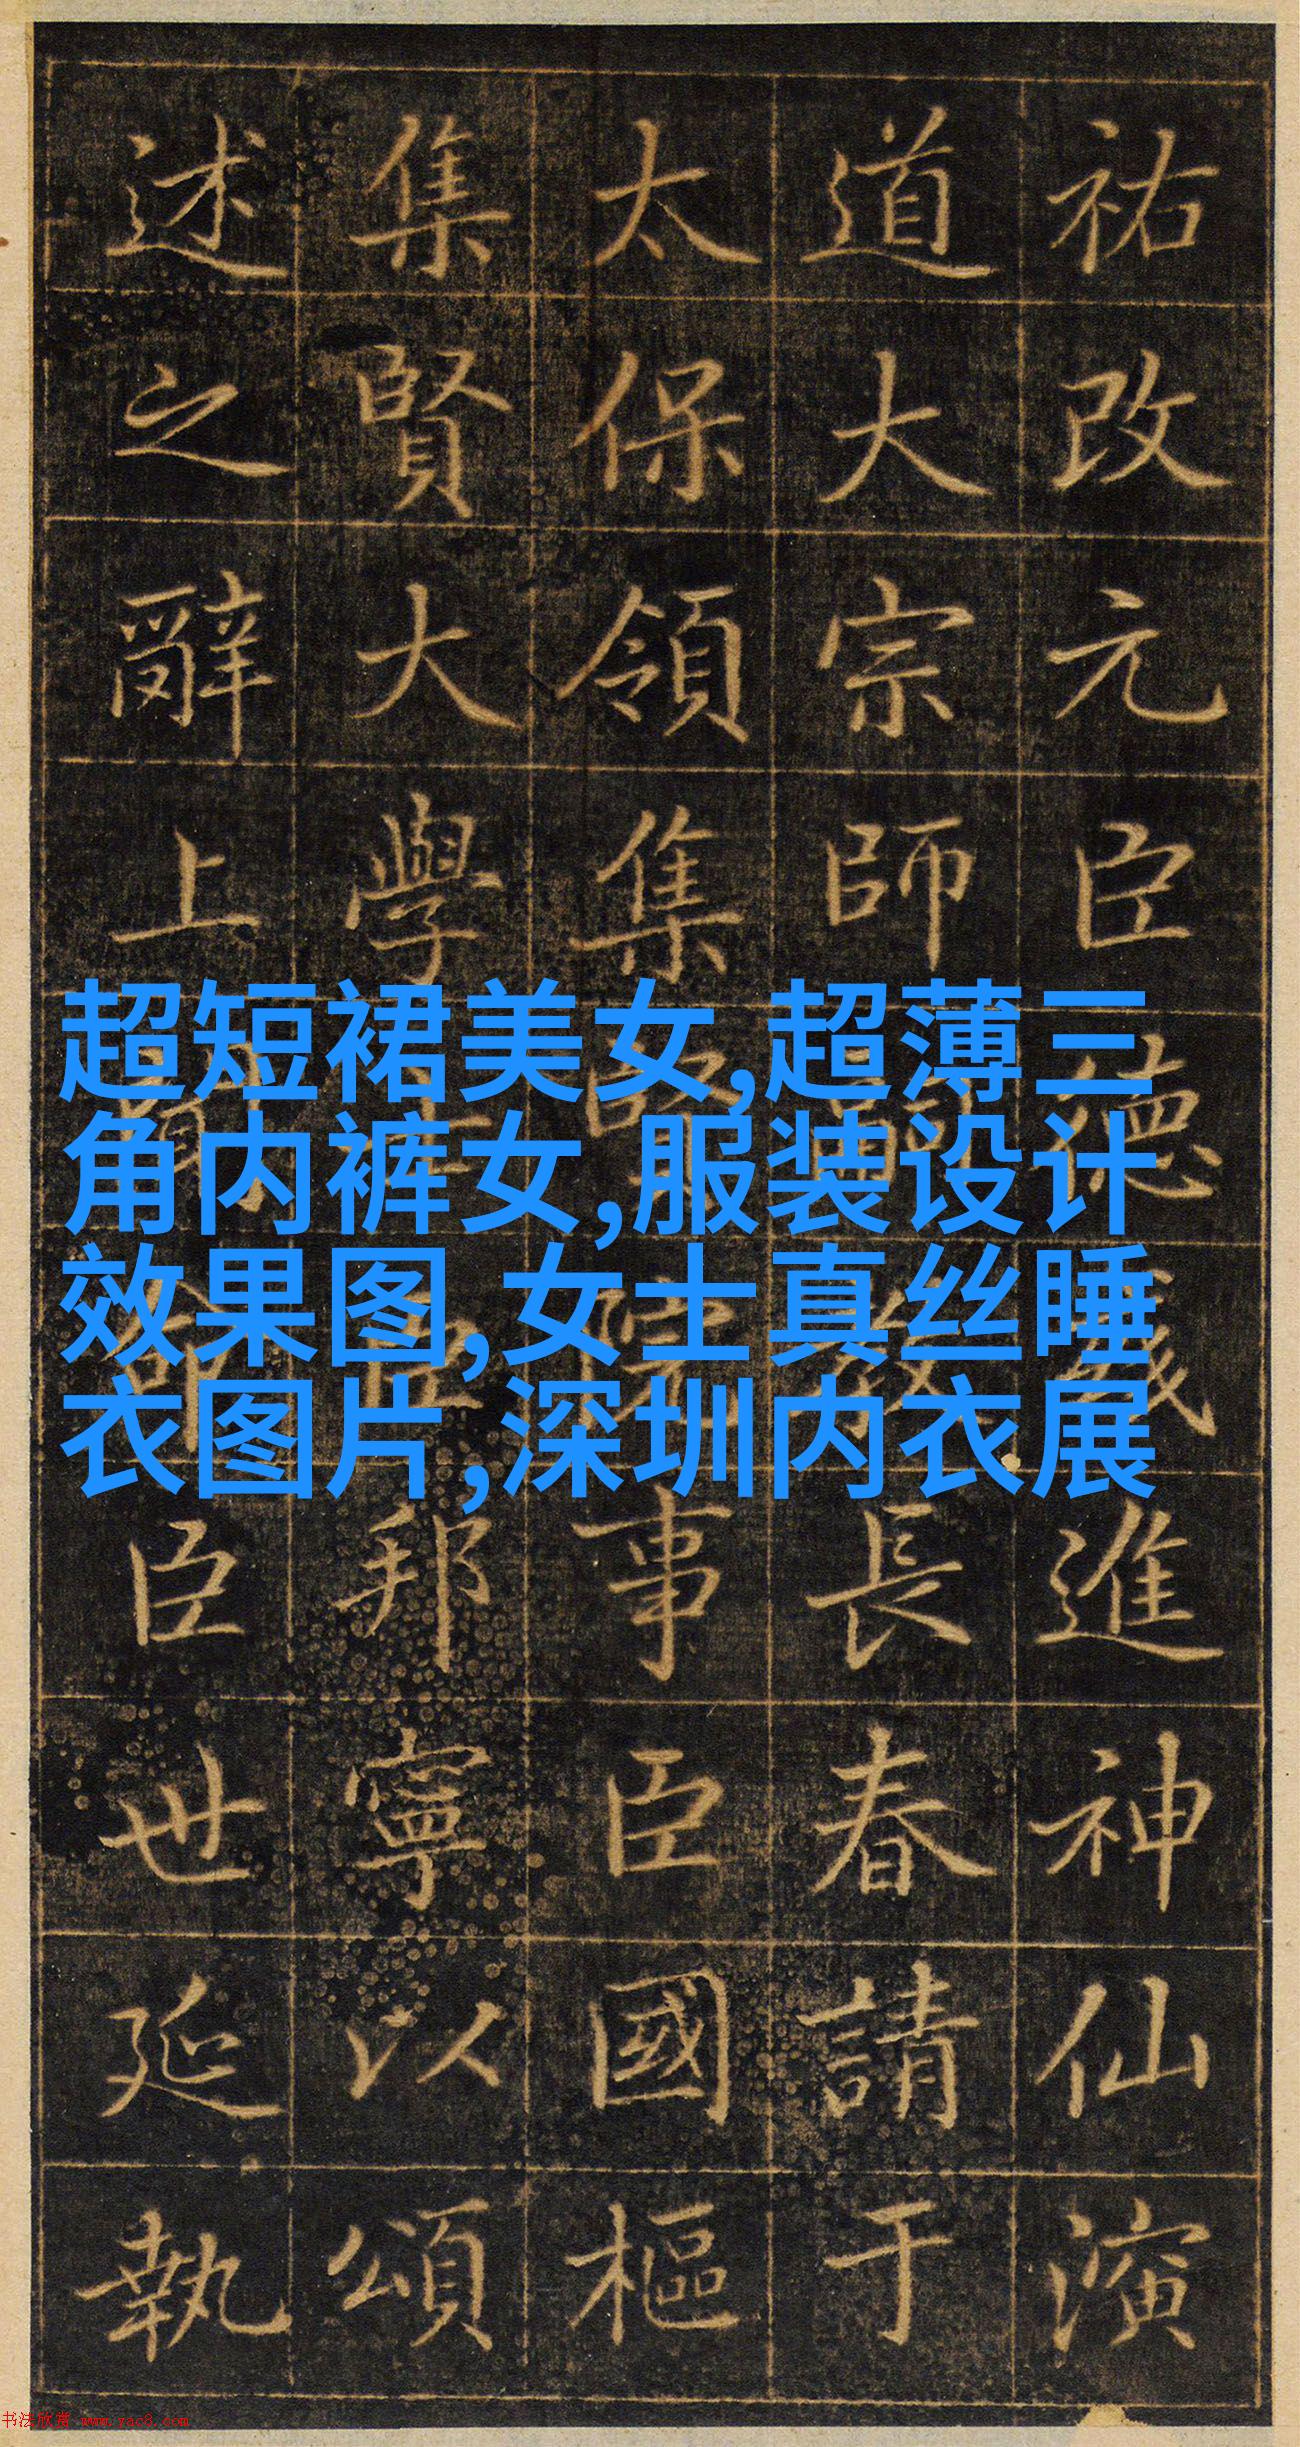 祐改元臣德義進神仙演
道大宗師教長春請于
太保領集賢院事臣國樞
集賢大學士臣邦寧以頌
述之辭上命臣世延執
超短裙美女,超薄三
角内裤女,服装设计
效果图,女士真丝睡
衣图片,深圳内衣展
书法欣赏 www.yac8.com